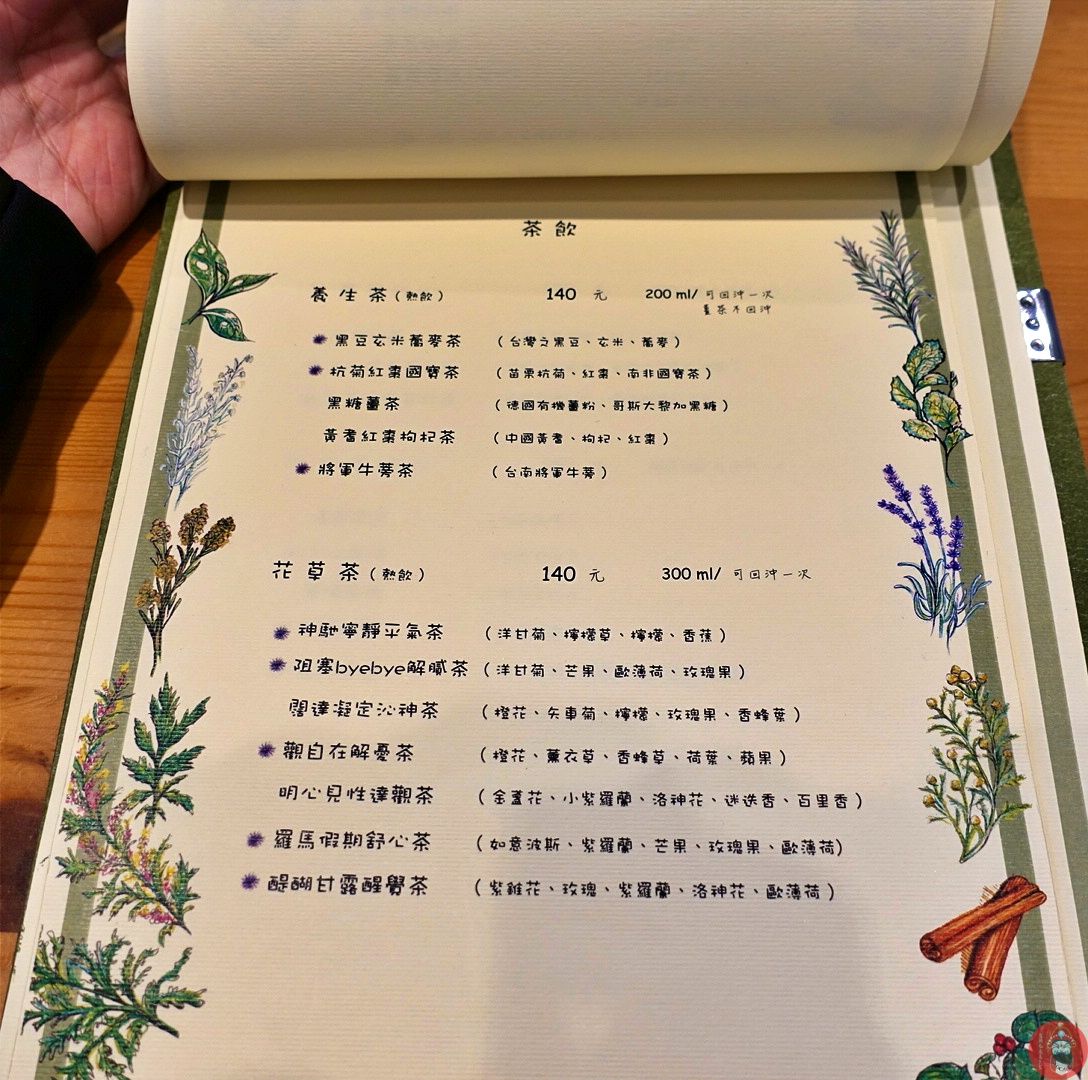 茶 飲
養 生 茶 ( 熱飲 ) 140 元 200 ml/ 可回沖一次
薑茶不回沖
黑豆玄米蕎麥茶 ( 台灣之黑豆、玄米、蕎麥 )
杭菊紅棗國寶茶 ( 苗栗杭菊、紅棗、南非國寶茶 )
黑糖薑茶 ( 德國有機薑粉、哥斯大黎加黑糖 )
黃耆紅棗枸杞茶 ( 中國黃耆、枸杞、紅棗 )
將軍牛蒡茶 ( 台南將軍牛蒡 )
花 草 茶 ( 熱飲 ) 140 元 300 ml/ 可回沖一次
神馳寧靜平氣茶 ( 洋甘菊、檸檬草、檸檬、香蕉 )
阻塞byebye解膩茶 ( 洋甘菊、芒果、歐薄荷、玫瑰果 )
闊達凝定沁神茶 ( 橙花、矢車菊、檸檬、玫瑰果、香蜂葉 )
觀自在解憂茶 ( 橙花、薰衣草、香蜂草、荷葉、蘋果 )
明心見性達觀茶 ( 金盞花、小紫羅蘭、洛神花、迷迭香、百里香 )
羅馬假期舒心茶 ( 如意波斯、紫羅蘭、芒果、玫瑰果、歐薄荷)
醍醐甘露醒覺茶 ( 紫錐花、玫瑰、紫羅蘭、洛神花、歐薄荷 )